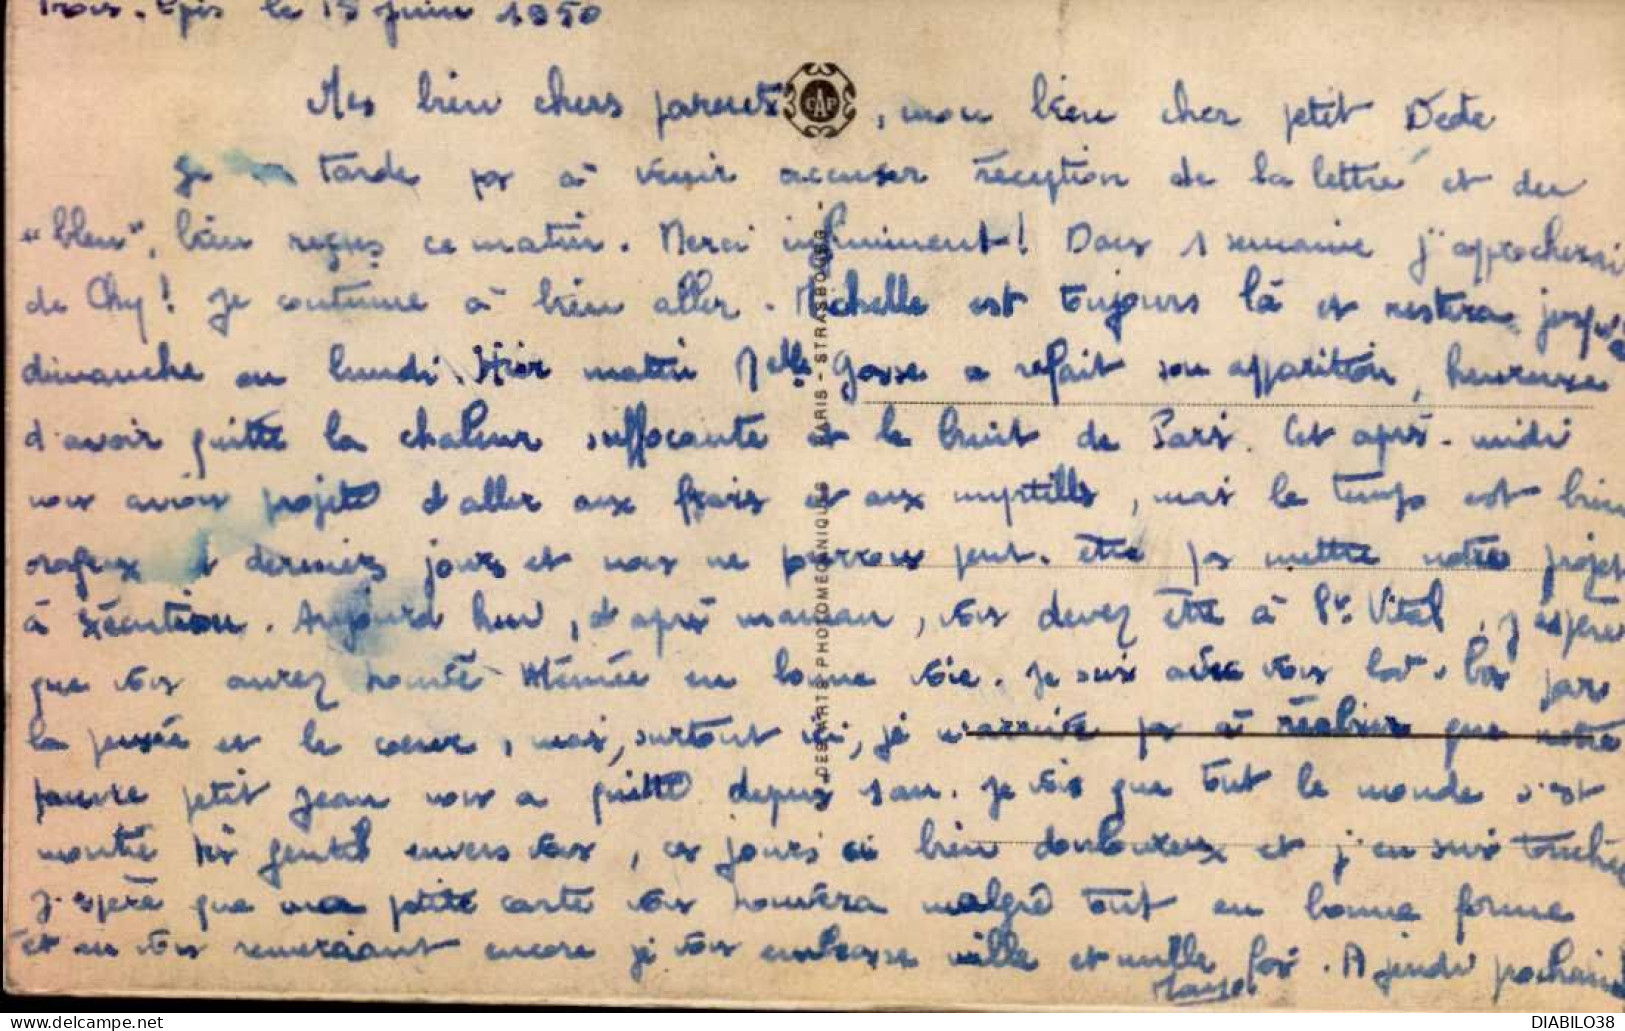 Trois-Epis le 15 Juin 1950
Mes bien chers parents, mon bien cher petit Dédé
CAP
Je ne tarde pas à venir accuser réception de la lettre et du
"bleu", bien reçus ce matin. Merci infiniment! Dans 1 semaine j'approcherai
de Chy! Je continue à bien aller. Michelle est toujours là et restera jusqu'à
dimanche ou lundi. Hier matin Melle Gosse a refait son apparition, heureuse
d'avoir quitté la chaleur suffocante et le bruit de Paris. Cet après-midi
nous avions projeté d'aller aux frais et aux myrtilles, mais le temps est bien
orageux derniers jours et nous ne pourrons peut-être pas mettre notre projet
à exécution. Aujourd'hui, d'après maman, vous devez être à St Vital, j'espère
que vous aurez trouvé Mémée en bonne voie. Je suis avec vous là-bas par
la pensée et le coeur, mais, surtout ici, je n'arrive pas à réaliser que notre
pauvre petit Jean nous a quitté depuis 1 an. Je vois que tout le monde s'est
montré très gentil envers vous, ces jours ci bien douloureux et j'en suis touchée
J'espère que ma petite carte vous trouvera malgré tout en bonne forme
et en vous remerciant encore je vous embrasse mille et mille fois. A jeudi prochain
DES ARTS PHOTOMÉCANIQUES - PARIS - STRASBOURG -
DIABILO38